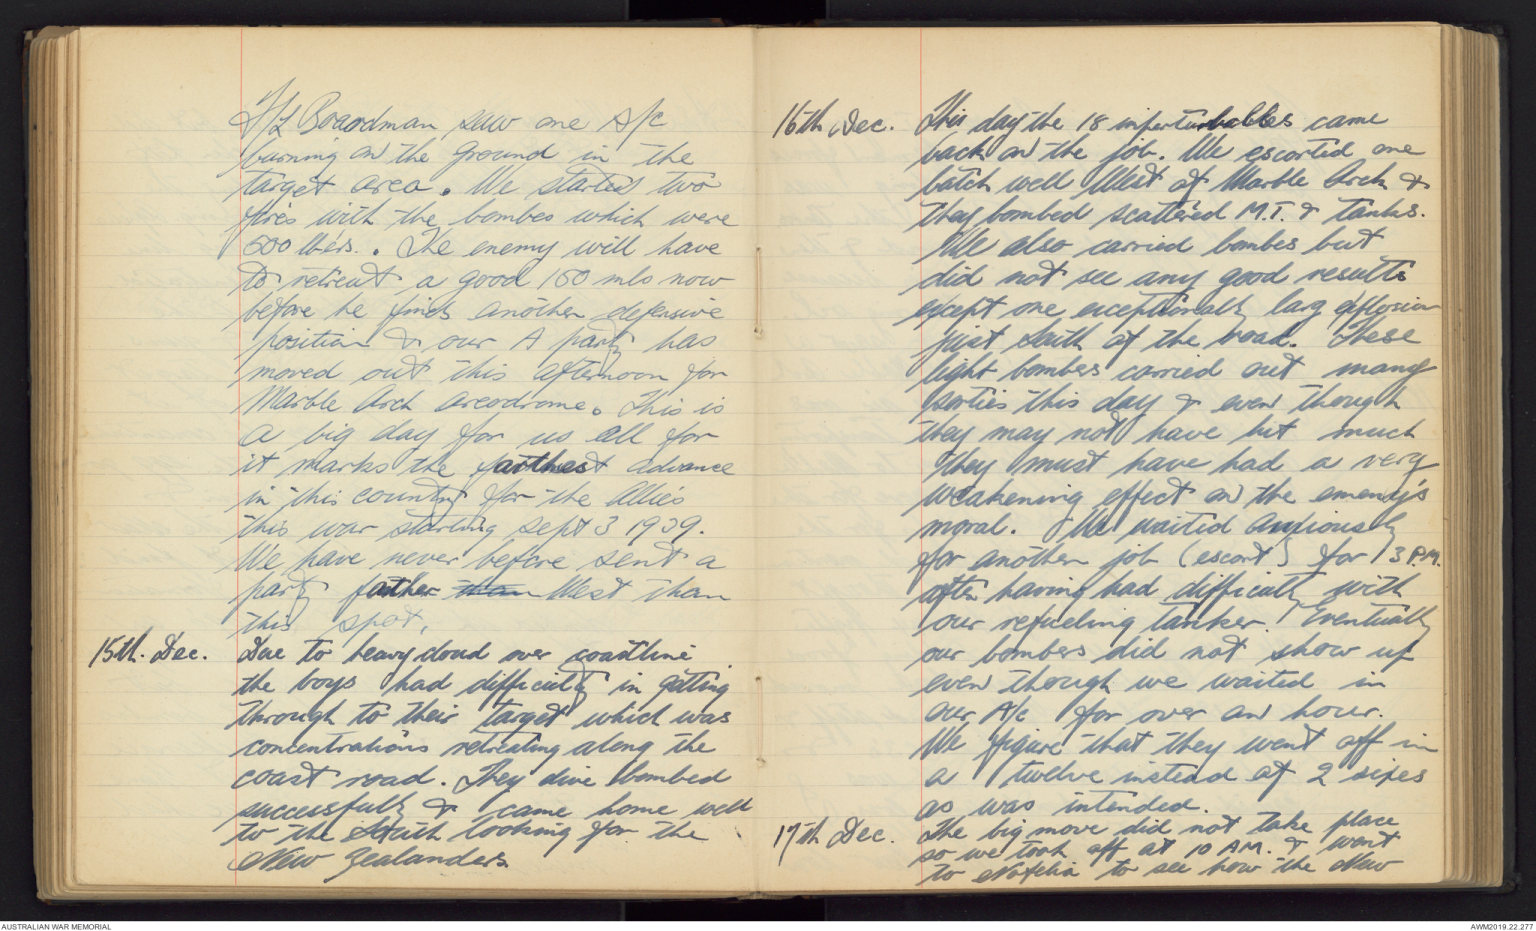 F/L Boardman saw one A/c
burning on the ground in the
target area. We started two
fires with the bombes which were
500 lbers.. The enemy will have
to retreat a good 150 mls now
before he finds another defensive
position & our A party has
moved out this afternoon for
Marble Arch areodrome. This is
a big day for us all for
it marks the farthest advance
in this country for the Allies
this war starting sept 3 1939.
We have never before sent a
party father than West than
this spot.
15th. Dec. Due to heavy cloud over coastline
the boys had difficulty in getting
through to their target which was
concentrations retreating along the
coast road. They dive bombed
successfully & came home well
to the South looking for the
New Zealanders
16th Dec. This day the 18 imperturbables came
back on the job. We escorted one
batch well West of Marble Arch &
they bombed scattered M.T. & tanks.
We also carried bombes but
did not see any good results
except one exceptionally larg explosion
just South of the road. These
light bombers carried out many
sorties this day & even though
they may not have hit much
they must have had a very
weakening effect on the emeny's
moral. We waited anxiously
for another job (escort) for 3 P.M.
after having had difficulty with
our refueling tanker. Eventually
our bombers did not show up
even though we waited in
our A/c for over an hour.
We figure that they went off in
a twelve instead of 2 sixes
as was intended.
17th Dec. The big move did not take place
so we took off at 10 A.M. & went
to Nofelia to see how the New
AUSTRALIAN WAR MEMORIAL
AWM2019.22.277